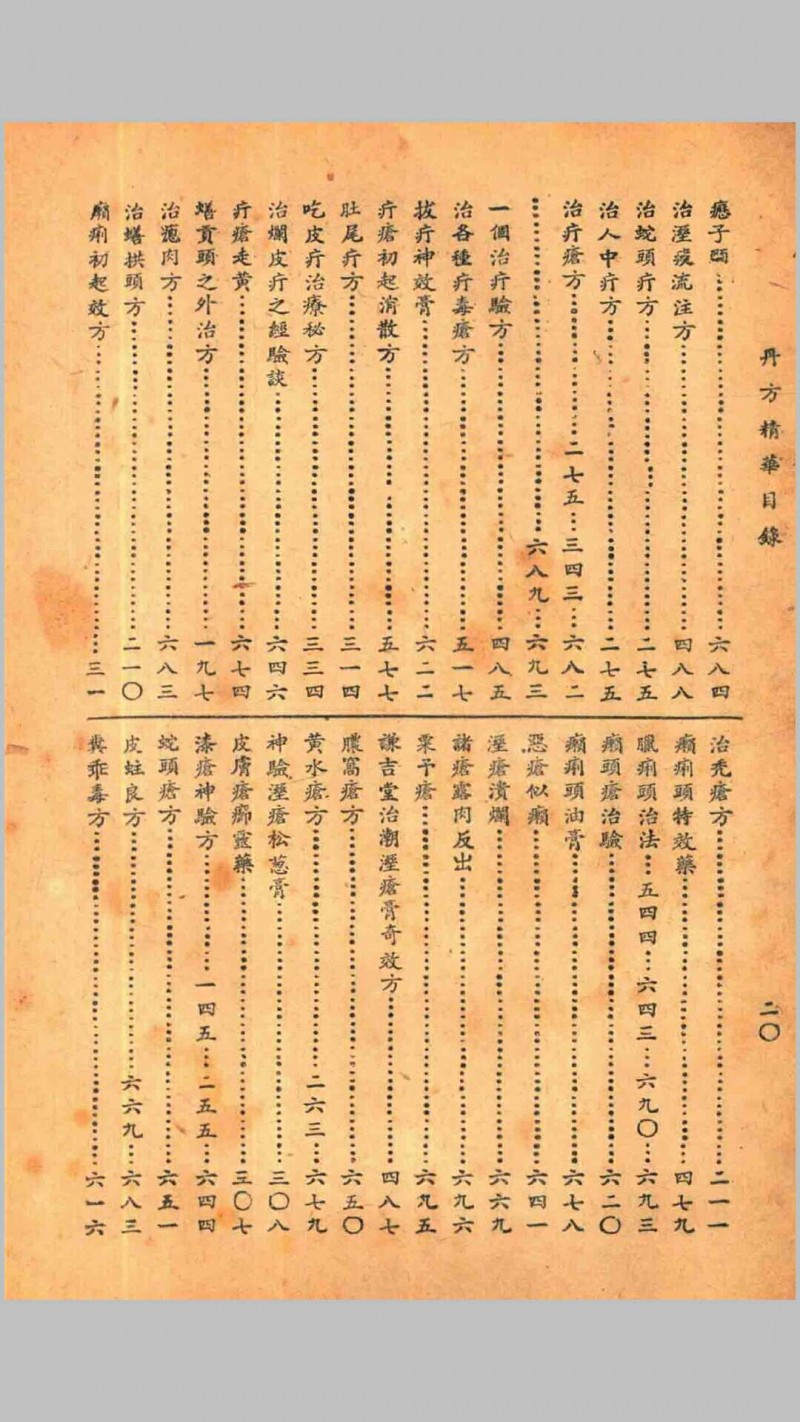 丹方精華目錄
二〇
子頸……六八四
治溼痰流注方……四八八
治蛇頭疔方……二七五
治人中疔方……二七五
治疔瘡方……二七五…三四三…六八二
……六八九…六九三
一個治疔驗方……四八五
治各種疔毒瘡方……五一七
拔疔神效膏……六二二
疔瘡初起消散方……五七七
肚尾疔方……三一四
吃皮疔治療秘方……三三四
治爛皮疔之經驗談……六四六
疔瘡走黃……六七四
蟮貢頭之外治方……一九七
治瘜肉方……六八三
治蟮拱頭方……二一〇
癩痢初起效方……三一
治禿瘡方……二一一
癩痢頭特效藥……四七九
臘痢頭治法…五四四…六四三…六九〇…六九三
癩頭瘡治驗……六二〇
癩痢頭油膏……六七八
惡瘡似癩……六四一
溼瘡潰爛……六六九
諸瘡努肉反出……六九六
粟予瘡……六九五
謙吉堂治潮溼瘡膏奇效方……四八七
膿窩瘡方……六五〇
黃水瘡方……二六三…六七九
神驗溼瘡松葱膏……三〇八
皮膚瘡癤靈藥……三〇七
漆瘡神驗方……一四五…二五五…六四四
蛇頭瘡方……六五一
皮蛀良方……六六九…六八三
糞乖毒方……六一六